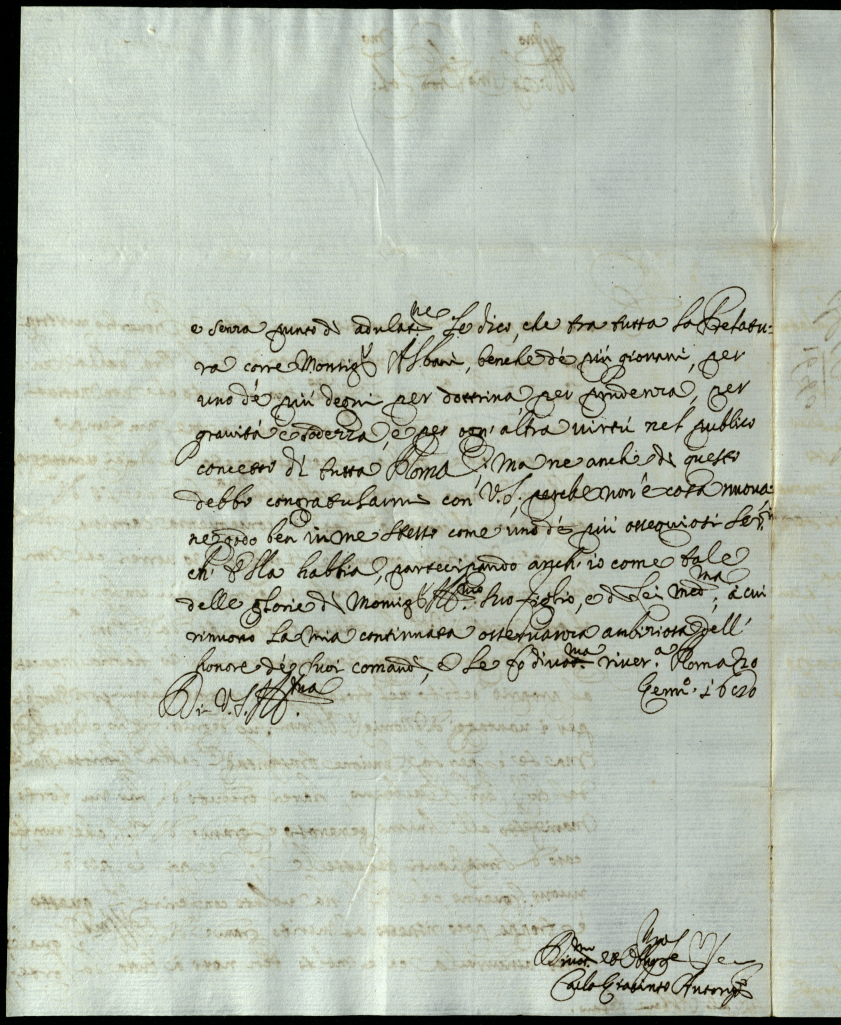 e senza punto di adulat.ne Le dico, che tra tutta la Prelatu-
ra corre Monsig.r Albani, benche de più giovani, per
uno de più degni per dottrina per prudenza, per
gravità e sodezza, e per ogn'altra virtù nel publico
concetto di tutta Roma; ma ne anche di questo
debbo congratularmi con V.S. perche non è cosa nuova
ne godo ben in me stesso come uno de più ossequiosi Ser.ri
ch'Ella habbia, partecipando anch'io come tale
delle glorie di Monsig.r Ill.mo suo figlio, e di Lei med.ma; à cui
rinuovo la mia continuata osservanza ambiziosa dell'
honore de suoi comandi, e Le fò divot.ma river.a Roma 20
Genn.o
Di V.S. Ill.ma
Divot.mo et Obblig.mo Ser.
Carlo Giacinto